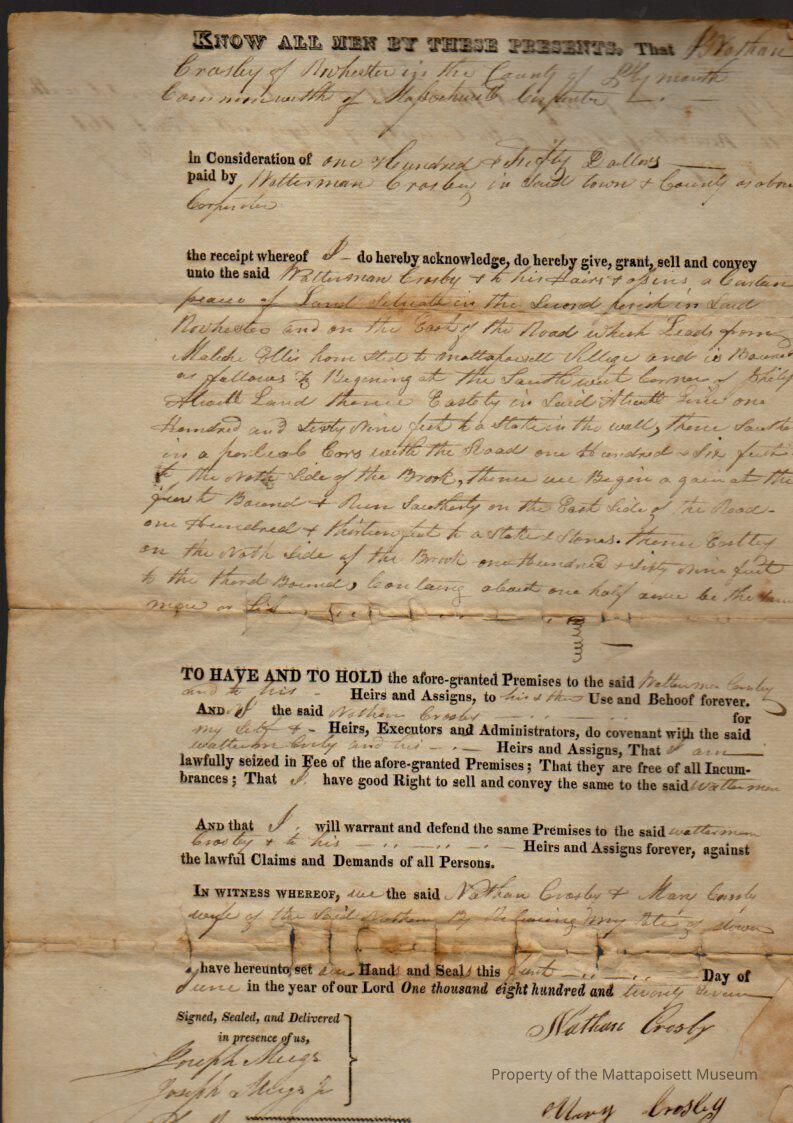 KNOW ALL MEN BY THESE PRESENTS. That I Nathan
Crosby of Rochester in the County of Plymouth
Commonwelth of Carpenter
in Consideration of one Hundred & Fifty Dollars
paid by Watterman Crosby in Said town & County as above
Carpenter
the receipt whereof I do hereby acknowledge, do hereby give, grant, sell and convey
unto the said Watterman Crosby & to his Hairs & a Certan
peace of Land Situate in the Second in Said
Rochester and on the East of the Road which Leads from
Ellis hom Sted to and is Bound
as follows Begining at the Southwest Corner of
Land thence in Said Line one
Hundred and Sixty Nine feet to a Stake in the wall, thence
in a with the Road one Hundred & Six feet
to the North Side of the Brook, thence we Begin a gain at the
first Bound & Run Southerly on the East Side of the Road
one Hundred & thirteen feet to a Stake & Stones. thence
on the North Side of the Brook one Hundred & Sixty Nine feet
to the third Bound, about one half be the Same
more or Less
TO HAVE AND TO HOLD the afore-granted Premises to the said Watterman Crosby
and to his Heirs and Assigns, to Use and Behoof forever.
AND I the said Nathan Crosby for
my Self & Heirs, Executors and Administrators, do covenant with the said
and his Heirs and Assigns, That I am
lawfully seized in Fee of the afore-granted Premises; That they are free of all Incum-
brances; That I have good Right to sell and convey the same to the said watterman
AND that I will warrant and defend the same Premises to the said watterman
Crosby & to his Heirs and Assigns forever, against
the lawful Claims and Demands of all Persons.
IN WITNESS WHEREOF, we the said Nathan Crosby & Mary Crosby
wife of the Said Nathan my of dower
have hereunto set our Hands and Seals this first Day of
June in the year of our Lord One thousand eight hundred and twenty Seven
Signed, Sealed, and Delivered
in presence of us,
Nathan Crosby
Joseph Meigs
Joseph Meigs Jr
Mary Crosby
Property of the Mattapoisett Museum